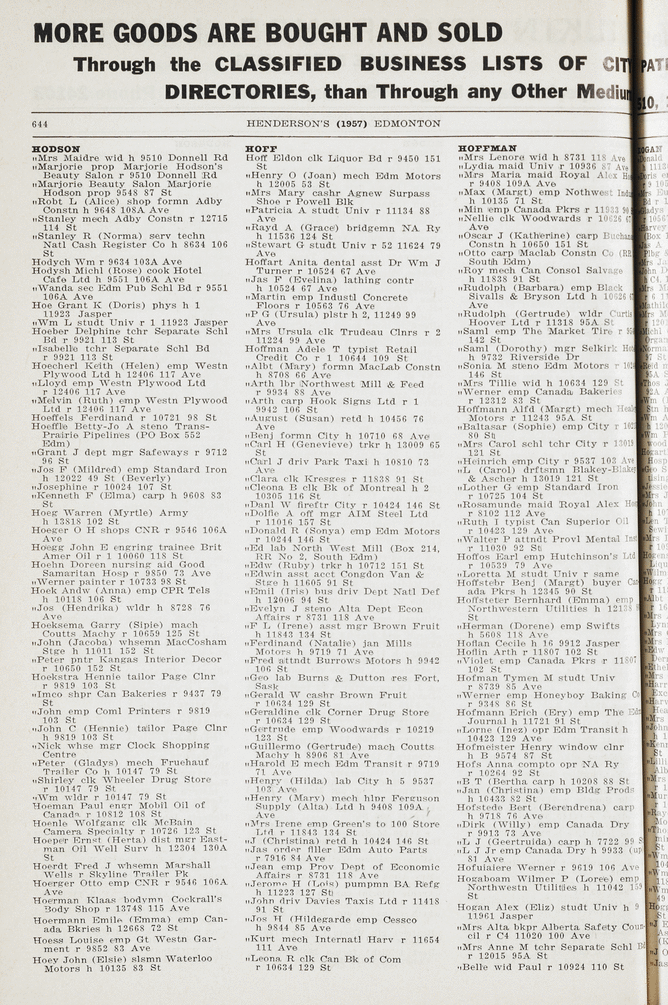 MORE GOODS ARE BOUGHT AND SOLD
Through the CLASSIFIED BUSINESS LISTS OF CITY
DIRECTORIES, than Through any Other Medium
644 HENDERSON'S (1957) EDMONTON
HODSON
"Mrs Maidre wid h 9510 Donnell Rd
"Marjorie prop Marjorie Hodson's
Beauty Salon r 9510 Donnell Rd
"Marjorie Beauty Salon Marjorie
Hodson prop 9548 87 St
"Robt L (Alice) shop formn Adby
Constn h 9648 108A Ave
"Stanley mech Adby Constn r 12715
114 St
"Stanley R (Norma) serv techn
Natl Cash Register Co h 8634 106
St
Hodych Wm r 9634 103A Ave
Hodysh Michl (Rose) cook Hotel
Cafe Ltd h 9551 106A Ave
"Wanda sec Edm Pub Schl Bd r 9551
106A Ave
Hoe Grant K (Doris) phys h 1
11923 Jasper
"Wm L studt Univ r 1 11923 Jasper
Hoeber Delphine tchr Separate Schl
Bd r 9921 113 St
"Isabelle tchr Separate Schl Bd
r 9921 113 St
Hoecherl Keith (Helen) emp Westn
Plywood Ltd h 12406 117 Ave
"Lloyd emp Westn Plywood Ltd
r 12406 117 Ave
"Melvin (Ruth) emp Westn Plywood
Ltd r 12406 117 Ave
Hoeffels Ferdinand r 10721 98 St
Hoeffle Betty-Jo A steno Trans-
Prairie Pipelines (PO Box 552
Edm)
"Grant J dept mgr Safeways r 9712
96 St
"Jos F (Mildred) emp Standard Iron
h 12022 49 St (Beverly)
"Josephine r 10024 107 St
"Kenneth F (Elma) carp h 9608 83
St
Hoeg Warren (Myrtle) Army
h 13818 102 St
Hoeger O H shops CNR r 9546 106A
Ave
Hoegg John E engring trainee Brit
Amer Oil r 1 10060 118 St
Hoehn Doreen nursing aid Good
Samaritan Hosp r 9850 73 Ave
"Werner painter r 10733 98 St
Hoek Andw (Anna) emp CPR Tels
h 10118 106 St
"Jos (Hendrika) wldr h 8728 76
Ave
Hoeksema Garry (Sipie) mach
Coutts Machy r 10659 125 St
"John (Jacoba) whsemn MacCosham
Stge h 11011 152 St
"Peter pntr Kangas Interior Decor
r 10650 152 St
Hoekstra Hennie tailor Page Clnr
r 9819 103 St
"Imco shpr Can Bakeries r 9437 79
St
"John emp Coml Printers r 9819
103 St
"John C (Hennie) tailor Page Clnr
h 9819 103 St
"Nick whse mgr Clock Shopping
Centre
"Peter (Gladys) mech Fruehauf
Trailer Co h 10147 79 St
"Shirley clk Wheeler Drug Store
r 10147 79 St
"Wm wldr r 10147 79 St
Hoeman Paul engr Mobil Oil of
Canada r 10812 108 St
Hoenle Wolfgang clk McBain
Camera Specialty r 10726 123 St
Hoeper Ernst (Herta) dist mgr East-
man Oil Well Surv h 12304 130A
St
Hoerdt Fred J whsemn Marshall
Wells r Skyline Trailer Pk
Hoerger Otto emp CNR r 9546 106A
Ave
Hoerman Klaas bodymn Cockrall's
Body Shop r 13748 115 Ave
Hoermann Emile (Emma) emp Can-
ada Bkries h 12668 72 St
Hoess Louise emp Gt Westn Gar-
ment r 9852 83 Ave
Hoey John (Elsie) slsmn Waterloo
Motors h 10135 83 St
HOFF
Hoff Eldon clk Liquor Bd r 9450 151
St
"Henry O (Joan) mech Edm Motors
h 12005 53 St
"Mrs Mary cashr Agnew Surpass
Shoe r Powell Blk
"Patricia A studt Univ r 11134 88
Ave
"Rayd A (Grace) bridgemn NA Ry
h 11536 124 St
"Stewart G studt Univ r 52 11624 79
Ave
Hoffart Anita dental asst Dr Wm J
Turner r 10524 67 Ave
"Jas F (Evelina) lathing contr
h 10524 67 Ave
"Martin emp Industl Concrete
Floors r 10563 76 Ave
"P G (Ursula) plstr h 2, 11249 99
Ave
"Mrs Ursula clk Trudeau Clnrs r 2
11224 99 Ave
Hoffman Adele T typist Retail
Credit Co r 1 10644 109 St
"Albt (Mary) formn MacLab Constn
h 8708 66 Ave
"Arth lbr Northwest Mill & Feed
r 9934 88 Ave
"Arth carp Hook Signs Ltd r 1
9942 106 St
"August (Susan) retd h 10456 76
Ave
"Benj formn City h 10710 68 Ave
"Carl H (Genevieve) trkr h 13009 65
St
"Carl J driv Park Taxi h 10810 73
Ave
"Clara clk Kresges r 11838 91 St
"Cleona B clk Bk of Montreal h 2
10305 116 St
"Danl W fireftr City r 10424 146 St
"Dolfie A off mgr AIM Steel Ltd
r 11016 157 St
"Donald R (Sonya) emp Edm Motors
r 10244 146 St
"Ed lab North West Mill (Box 214,
RR No 2, South Edm)
"Edw (Ruby) trkr h 10712 151 St
"Edwin asst acct Congdon Van &
Stge h 11605 91 St
"Emil (Iris) bus driv Dept Natl Def
h 12006 94 St
"Evelyn J steno Alta Dept Econ
Affairs r 8731 118 Ave
"F L (Irene) asst mgr Brown Fruit
h 11843 134 St
"Ferdinand (Natalie) jan Mills
Motors h 9719 71 Ave
"Fred attndt Burrows Motors h 9942
106 St
"Geo lab Burns & Dutton res Fort,
Sask
"Gerald W cashr Brown Fruit
r 10634 129 St
"Geraldine clk Corner Drug Store
r 10634 129 St
"Gertrude emp Woodwards r 10219
123 St
"Guillermo (Gertrude) mach Coutts
Machy h 8906 81 Ave
"Harold E mech Edm Transit r 9719
71 Ave
"Henry (Hilda) lab City h 5 9537
103 Ave
"Henry (Mary) mech hlpr Ferguson
Supply (Alta) Ltd h 9408 109A
Ave
"Mrs Irene emp Green's to 100 Store
Ltd r 11843 134 St
"J (Christina) retd h 10424 146 St
"Jas order filler Edm Auto Parts
r 7916 84 Ave
"Jean emp Prov Dept of Economic
Affairs r 8731 118 Ave
"Jerome H (Lois) pumpmn BA Refg
h 11223 127 St
"John driv Davies Taxi Ltd r 11418
91 St
"Jos H (Hildegarde emp Cessco
h 9844 85 Ave
"Kurt mech Internatl Harv r 11654
111 Ave
"Leona R clk Can Bk of Com
r 10634 129 St
HOFFMAN
"Mrs Lenore wid h 8731 118 Ave
"Lydia maid Univ r 10936 87 Ave
"Mrs Maria maid Royal Alex
r 9408 109A Ave
"Max (Margt) emp Nothwest
h 10135 71 St
"Min emp Canada Pkrs r 11933
"Nellie clk Woodwards r 10626 67
Ave
"Oscar J (Katherine) carp
Constn h 10650 151 St
"Otto carp Maclab Constn Co (RR
South Edm)
"Roy mech Can Consol Salvage
h 11838 91 St
"Rudolph (Barbara) emp Black
Sivalls & Bryson Ltd h 10626
Ave
"Rudolph (Gertrude) wldr
Hoover Ltd r 11318 95A St
"Saml emp The Market Tire r
142 St
"Saml (Dorothy) mgr Selkirk
h 9732 Riverside Dr
"Sonia M steno Edm Motors r
146 St
"Mrs Tillie wid h 10634 129 St
"Werner emp Canada Bakeries
r 12312 83 St
Hoffmann Alfd (Margt) mech
Motors r 11243 95A St
"Baltasar (Sophie) emp City r
80 St
"Mrs Carol schl tchr City r
121 St
"Heinrich emp City r 9537 103 Ave
"L (Carol) drftsmn Blakey-Blakey
& Ascher h 13019 121 St
"Lother G emp Standard Iron
r 10725 104 St
"Rosamunde maid Royal Alex
r 8102 112 Ave
"Ruth I typist Can Superior Oil
r 10423 129 Ave
"Walter P attndt Provl Mental
r 11030 92 St
Hoffos Earl emp Hutchinson's Ltd
r 10539 79 Ave
"Loretta M studt Univ r same
Hoffstetr Benj (Margt) buyer
ada Pkrs h 12345 90 St
Hoffsteter Bernhard (Emma) emp
Northwestern Utilities h
St
"Herman (Dorene) emp Swifts
h 5608 118 Ave
Hoflan Cecile h 16 9912 Jasper
Hoflin Arth r 11807 102 St
"Violet emp Canada Pkrs r 11807
102 St
Hofman Tymen M studt Univ
r 8739 85 Ave
"Werner emp Honeyboy Baking
r 9348 86 St
Hofmann Erich (Ery) emp The
Journal h 11721 91 St
"Lorne (Inez) opr Edm Transit h
10423 129 Ave
Hofmeister Henry window clnr
h B 9574 87 St
Hofs Anna compto opr NA Ry
r 10264 92 St
"B T (Bertha carp h 10208 88 St
"Jan (Christina) emp Bldg Prods
h 10433 82 St
Hofstede Bert (Berendrena) carp
h 9718 76 Ave
"Dirk (Willy) emp Canada Dry
r 9913 73 Ave
"L J (Geertruida) carp h 7722 99
"L J Jr emp Canada Dry h 9933
81 Ave
Hofuiaiere Werner r 9619 106 Ave
Hogaboam Wilmer P (Loree) emp
Northwestn Utilities h 11042
St
Hogan Alex (Eliz) studt Univ h 9
11961 Jasper
"Mrs Alta bkpr Alberta Safety
cil r C4 11020 100 Ave
"Mrs Anne M tchr Separate Schl
r 12015 95A St
"Belle wid Paul r 10924 110 St